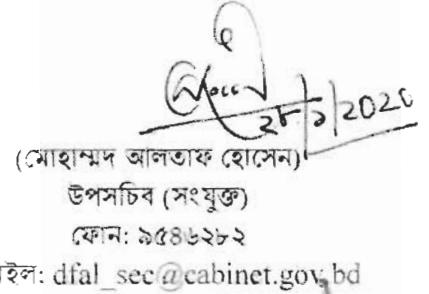 ২৮/১/2020
(মোহাম্মদ আলতাফ হোসেন)
উপসচিব (সংযুক্ত)
ফোন: ৯৫৪৬২৮২
ইল: dfal_sec@cabinet.gov.bd